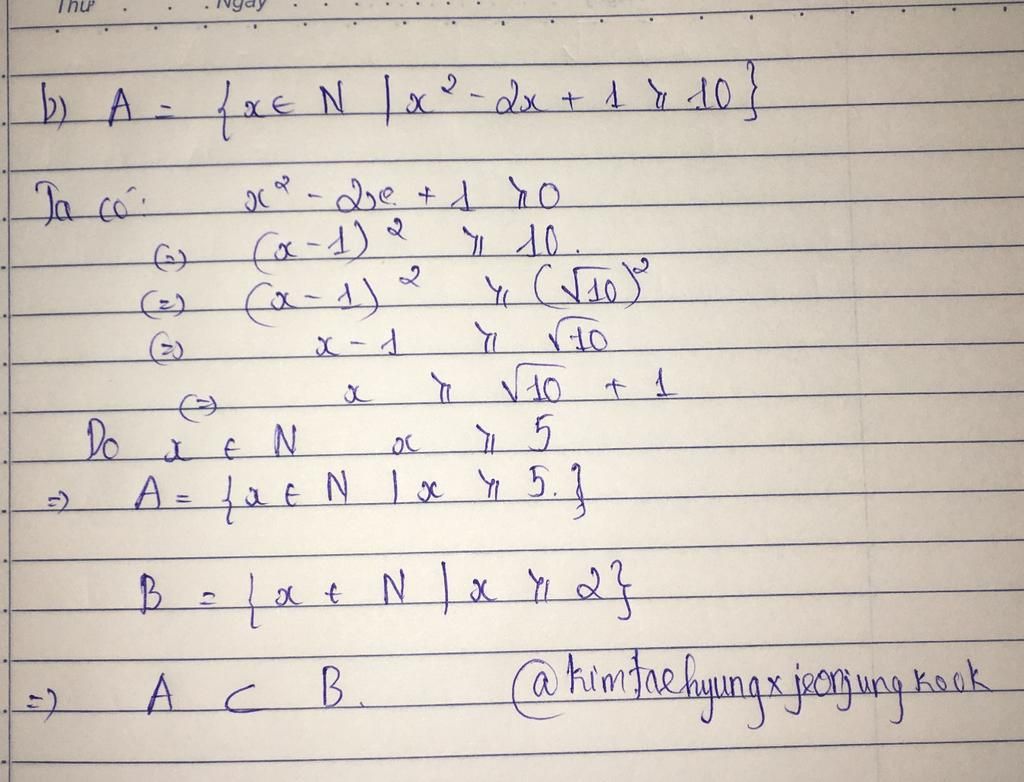 Thứ Ngày
b) A = {x ∈ N | x² - 2x + 1 ⩾ 10}
Ta có: x² - 2x + 1 ⩾ 0
(=) (x - 1)² ⩾ 10.
(=) (x - 1)² ⩾ (√10)²
(=) x - 1 ⩾ √10
(=) x ⩾ √10 + 1
Do x ∈ N x ⩾ 5
=) A = {x ∈ N | x ⩾ 5.}
B = {x ∈ N | x ⩾ 2}
=) A ⊂ B. @kimtaehyungxjeonjungkook